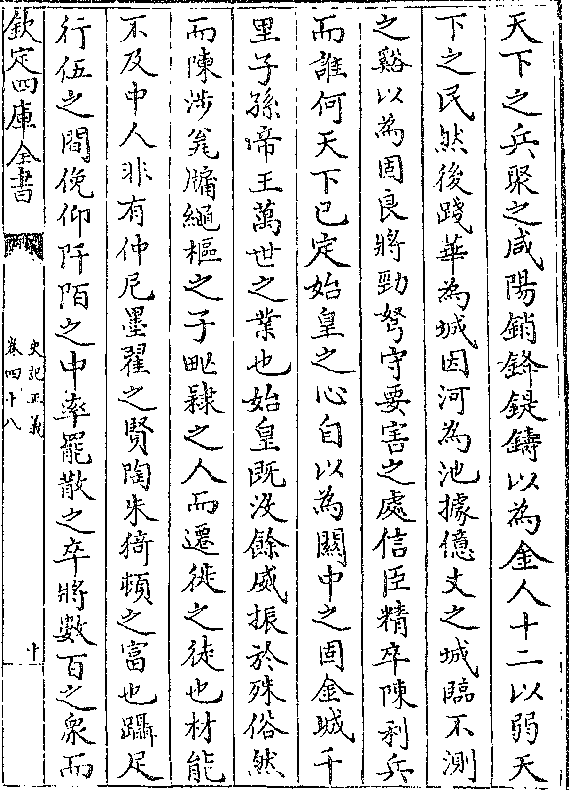 天下之兵聚之咸陽銷鋒鍉鑄以為金人十二以弱天
下之民然後踐華為城因河為池據億丈之城臨不測
之谿以為固良將勁弩守要害之處信臣精卒陳利兵
而誰何天下已定始皇之心自以為關中之固金城千
里子孫帝王萬世之業也始皇既沒餘威振於殊俗然
而陳涉瓮牖繩樞之子甿隸之人而遷徙之徒也材能
不及中人非有仲尼墨翟之賢陶朱猗頓之富也躡足
行伍之間俛仰阡陌之中率罷散之卒將數百之眾而
欽定四庫全書
史記正義
卷四十八
十